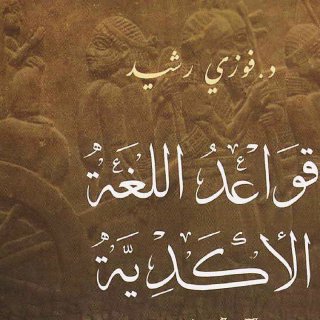 د.فوزي رشيد
قَوَاعدُ اللغَةُ
الأكَدِيَّةُ